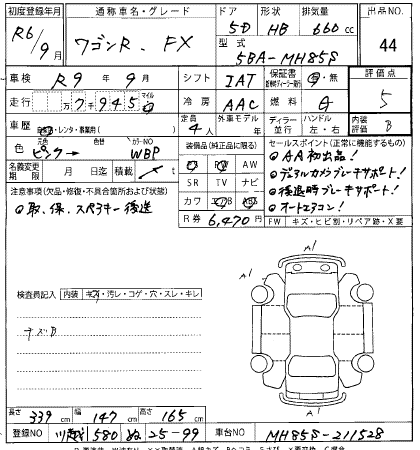 初度登録年月 通称車名・グレード ドア 形状 排気量 出品NO.
R6/9月 ワゴンR. FX 5D HB 660cc 44
型式 5BA-MH85S
車検 R9年9月 シフト IAT 保証書 有・無 評価点
走行 万7千945 マイル 冷房 AAC 燃料 G 5
車歴 自家・レンタ・事業用( ) 定員 4人 外車モデル 年 ディーラー 並行 ハンドル 左・右 内装評価 B
色 元色 ピンク→ 色替 カラーNO WBP
装備品(純正品に限る) セールスポイント(正常に機能するもの)
名義変更期限 月 日迄 積載 t
PW AW
SR TV ナビ
カワ ABS
R券 6,470円
◎AA初出品!
◎デュアルカメラブレーキサポート!
◎後退時ブレーキサポート!
◎オートエアコン!
注意事項(欠品・修復・不具合箇所および状態)
◎取、保、スペアキー後送
FW キズ・ヒビ割・リペア跡・X要
検査員記入 内装 キズ・汚レ・コゲ・穴・スレ・キレ
キズB
A1
A1
A1
長さ 339cm 幅 147cm 高さ 165cm
登録NO 川越 580 ぬ 25-99 車台NO MH85S-211528